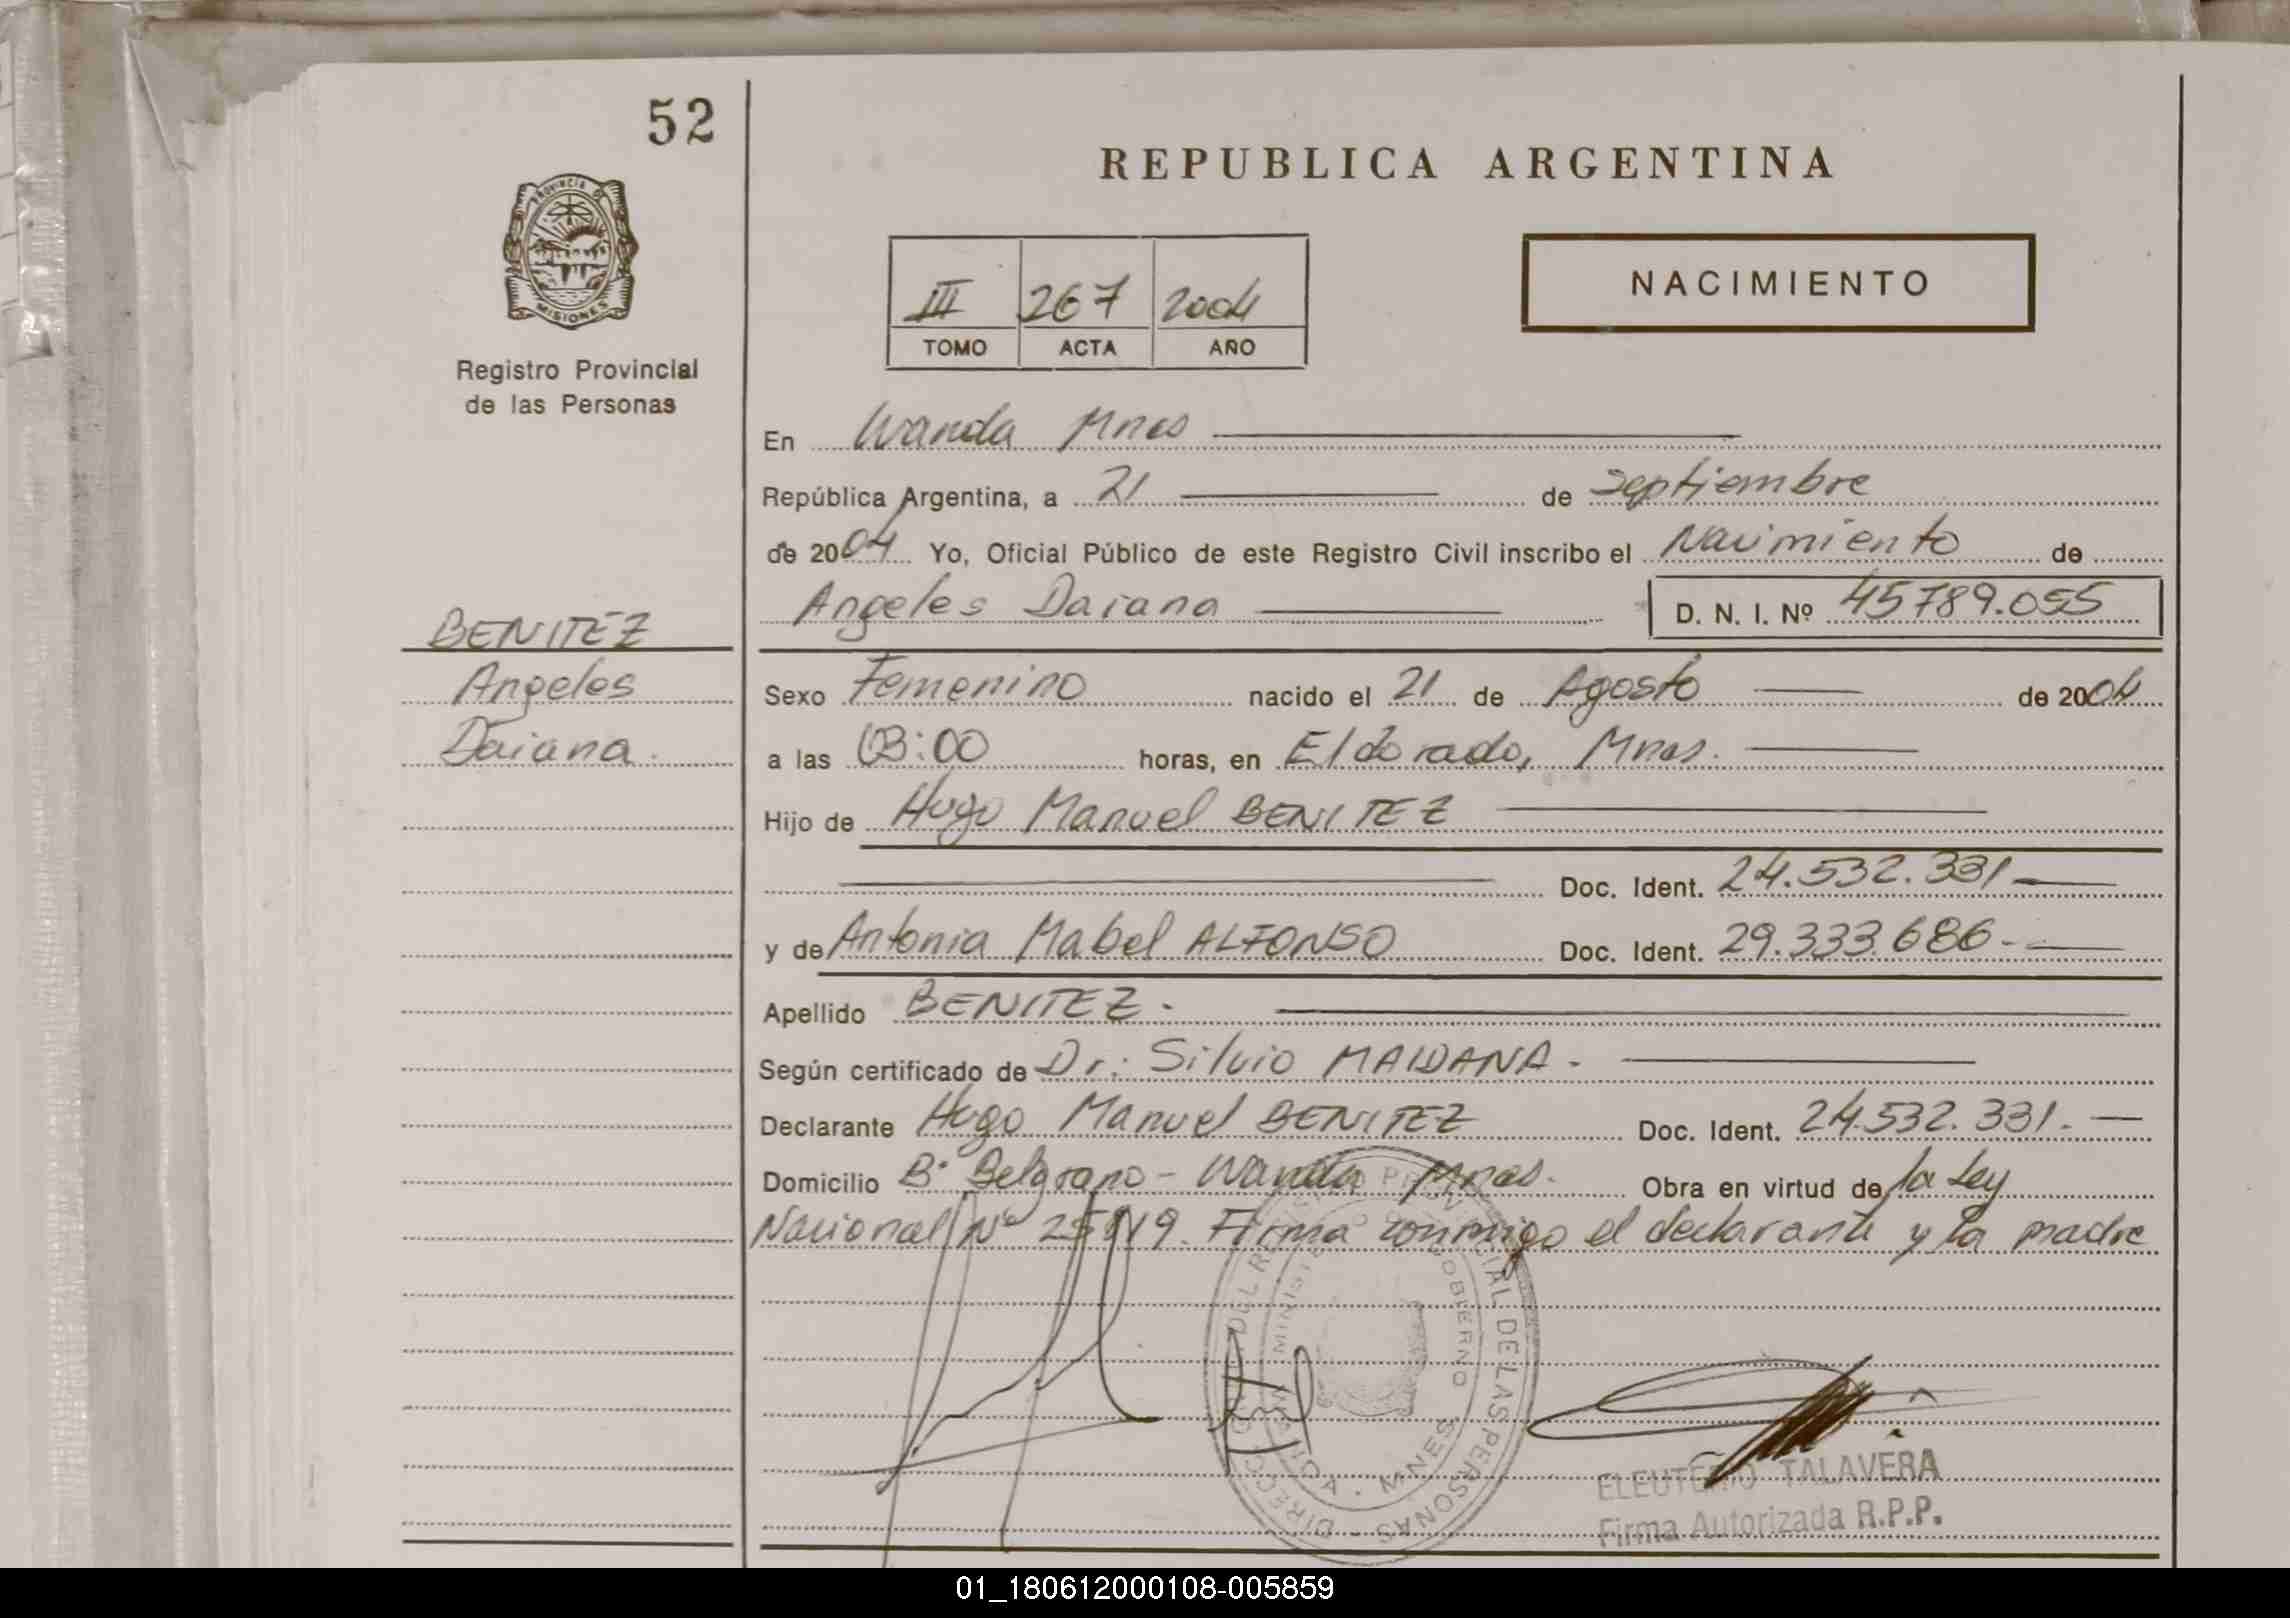 52
REPUBLICA ARGENTINA
PROVINCIA DE
MISIONES
NACIMIENTO
III 267 2004
TOMO ACTA AÑO
Registro Provincial
de las Personas
En Wanda Mnes
República Argentina, a 21 de septiembre
de 2004 Yo, Oficial Público de este Registro Civil inscribo el Nacimiento de
Angeles Daiana D. N. I. Nº 45789.055
BENITEZ
Angeles
Daiana.
Sexo Femenino nacido el 21 de Agosto de 2004
a las 03:00 horas, en Eldorado, Mnes.
Hijo de Hugo Manuel BENITEZ
Doc. Ident. 24.532.331
y de Antonia Mabel ALFONSO Doc. Ident. 29.333.686-
Apellido BENITEZ.
Según certificado de Dr: Silvio MAIDANA-
Declarante Hugo Manuel BENITEZ Doc. Ident. 24.532.331.
Domicilio Bº Belgrano - Wanda Mnes. Obra en virtud de la Ley
Nacional Nº 25819. Firma conmigo el declarante y la madre
MINISTERIO GOBIERNO
DE LAS PERSONAS
WANDA - MNES
ELEUTERIO TALAVERA
Firma Autorizada R.P.P.
01_180612000108-005859